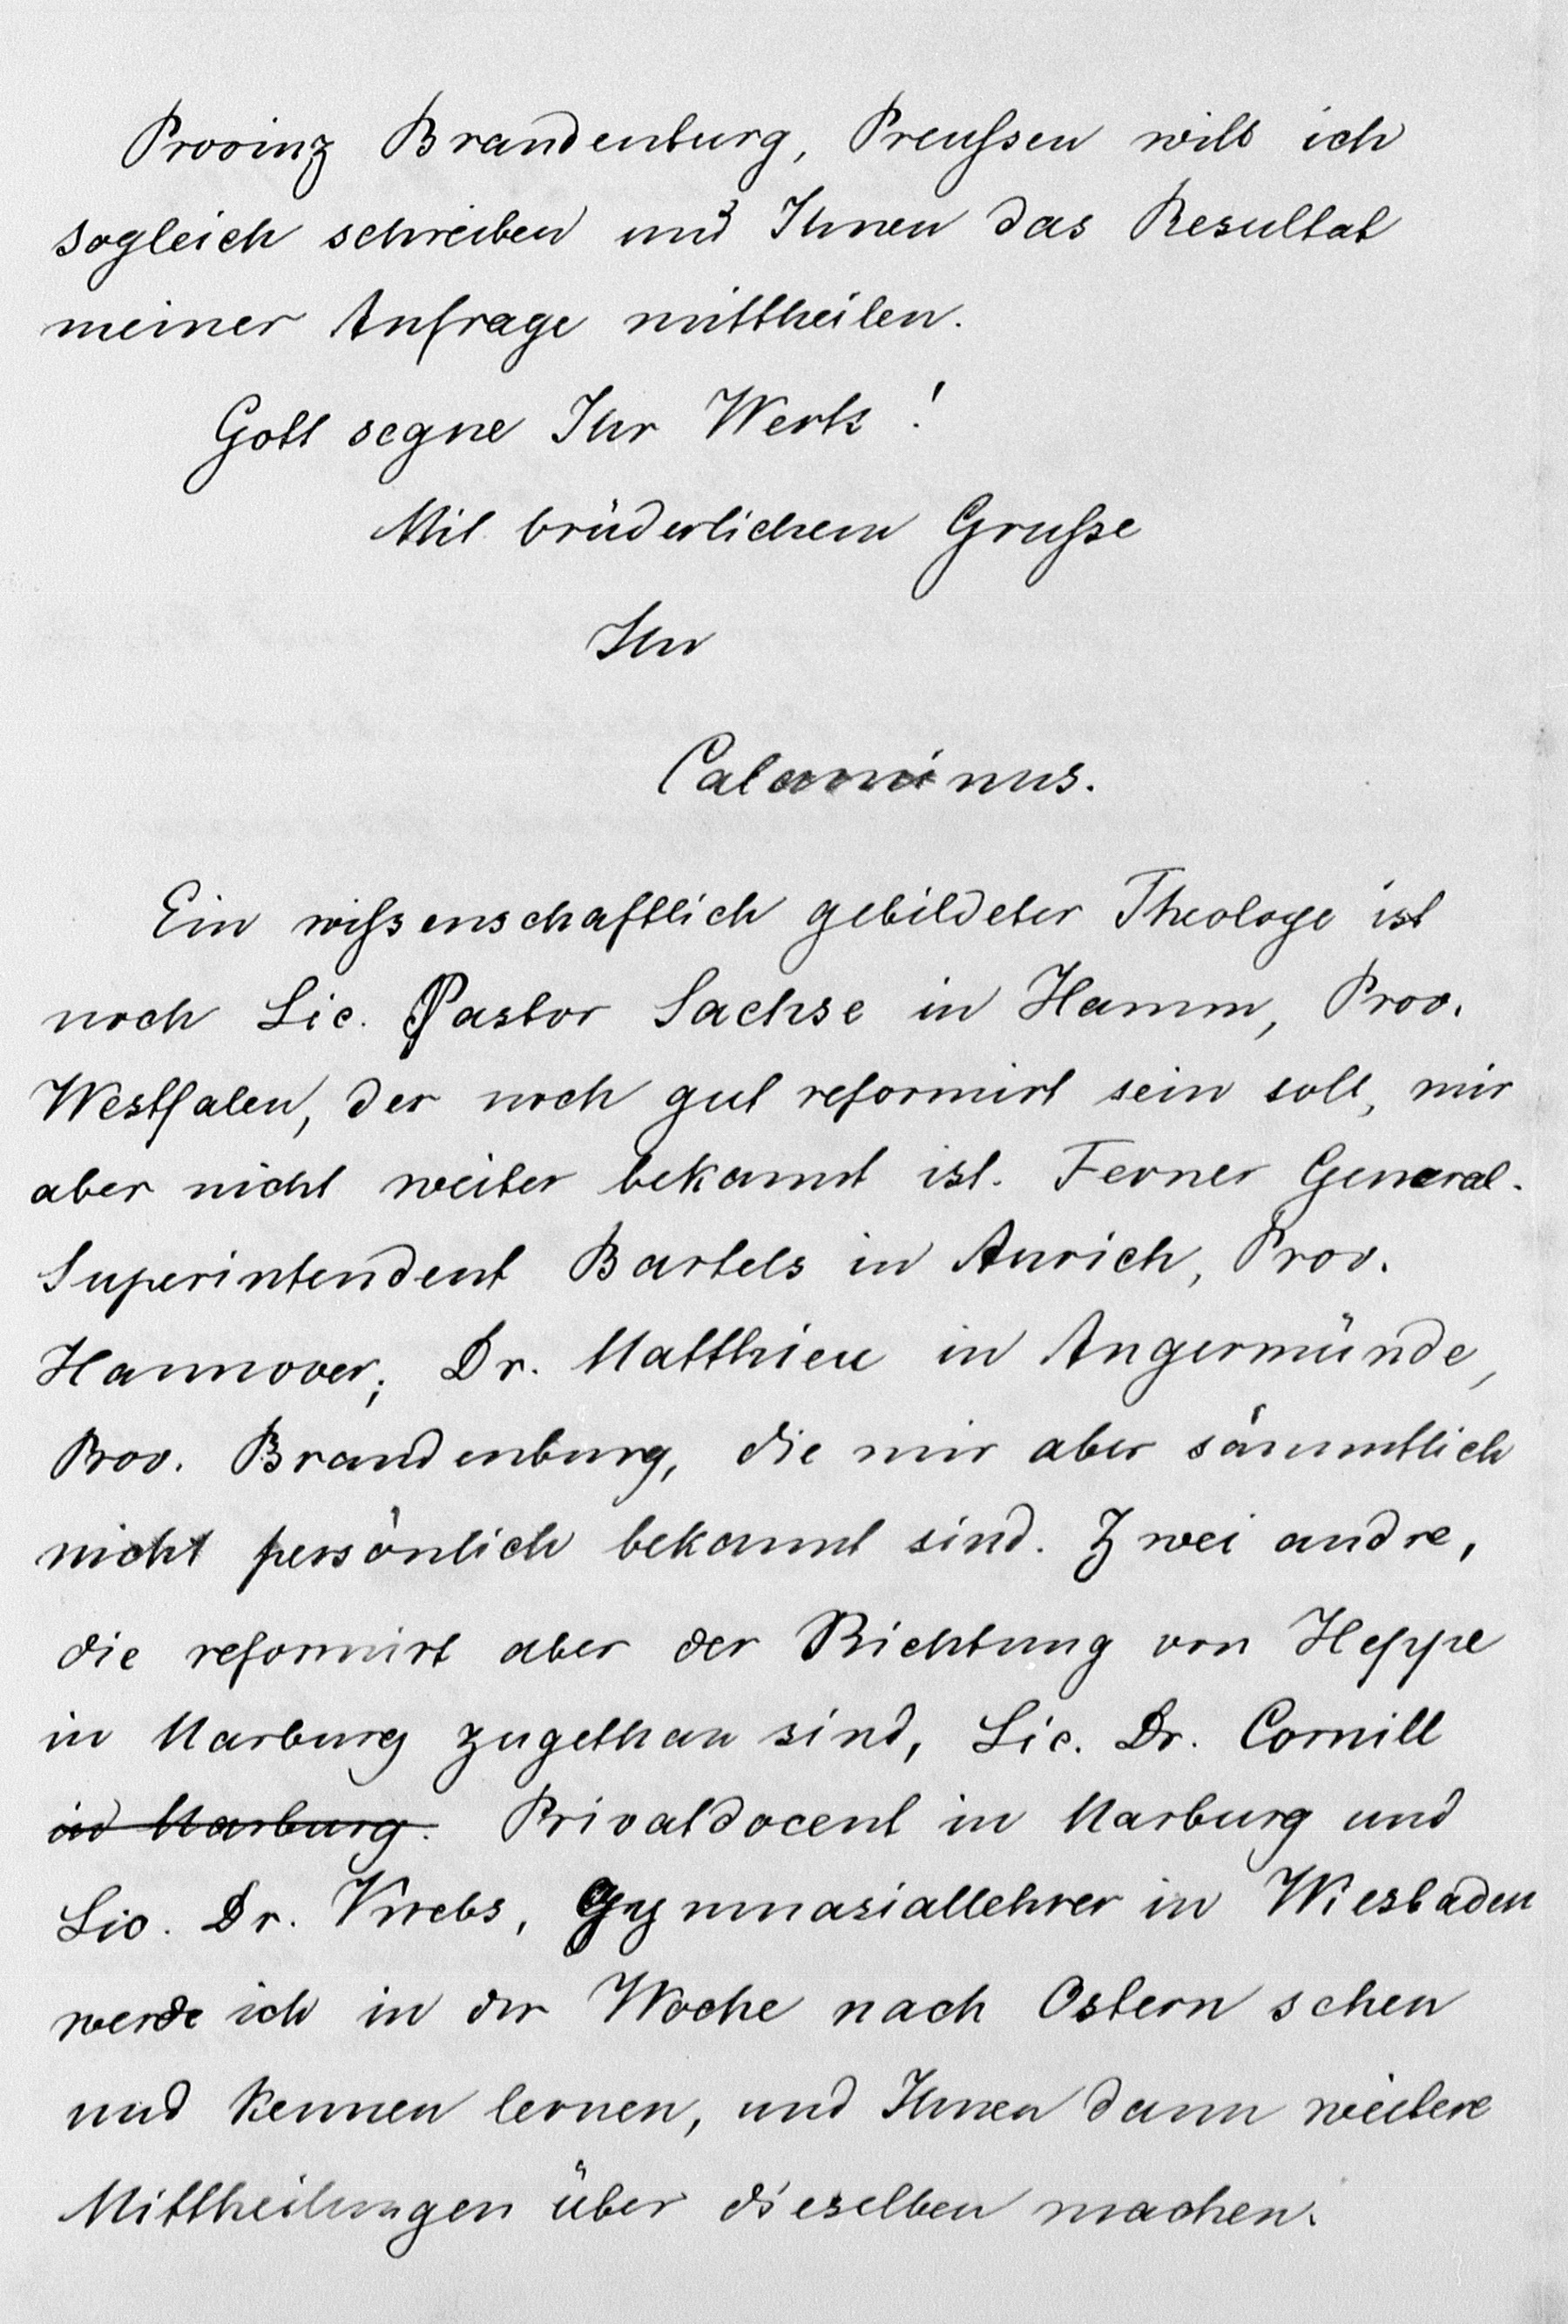 Provinz Brandenburg, Preußen will ich
sogleich schreiben und Ihnen das Resultat
meiner Anfrage mittheilen.
Gott segne Ihr Werk!
Mit brüderlichem Gruße
Ihr
Calaminus.
Ein wißenschaftlich gebildeter Theologe ist
noch Lic. Pastor Sachse in Hamm, Prov.
Westfalen, der noch gut reformirt sein soll, mir
aber nicht weiter bekannt ist. Ferner General-
Superintendent Bartels in Aurich, Prov.
Hannover; Dr. Matthieu in Angermünde,
Prov. Brandenburg, die mir aber sämmtlich
nicht persönlich bekannt sind. Zwei andre,
die reformirt aber der Richtung von Heppe
in Marburg zugethan sind, Lic. Dr. Cornill
in Marburg. Privatdocent in Marburg und
Lic. Dr. Krebs, Gymnasiallehrer in Wiesbaden
werde ich in der Woche nach Ostern sehen
und kennen lernen, und Ihnen dann weitere
Mittheilungen über dieselben machen.